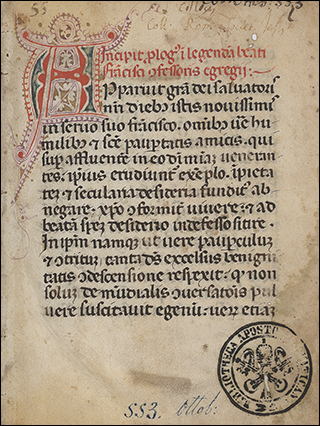 53
Incipit plogꝰ ĩ legendã beati
francisci ↄfessoris egregij:
Apparuit grã dei saluatoris
nrĩ dieb͛ istis nouissimis
in seruo suo francisco. omĩb͛ ũe hu
milib͛ ⁊ scẽ paup̃tatis amicis. qui
suꝑ affluentẽ in eo dĩ mĩaꝫ ueneran
tes. ipĩus erudiunt᷑ exẽplo. ĩpieta
teꝫ ⁊ secularia desideria fundit᷑ ab
negare. xp̃o ↄformit᷑ uiuere. ⁊ ad
beatã speꝫ desiderio indefesso sitire.
In ip̃m namqꝫ ut uere pauꝑculuꝫ
⁊ ↄtritũ. tanta dꝰ̃ excelsus benigni
tatis ↄdescensione respexit. ꝙ non
soluꝫ de mũdialis ↄuersatõis pul
uere suscitauit egenũ: ueꝝ etiaꝫ
BIBLIOTHECA APOSTOLICA VATICANA
553. ottob: